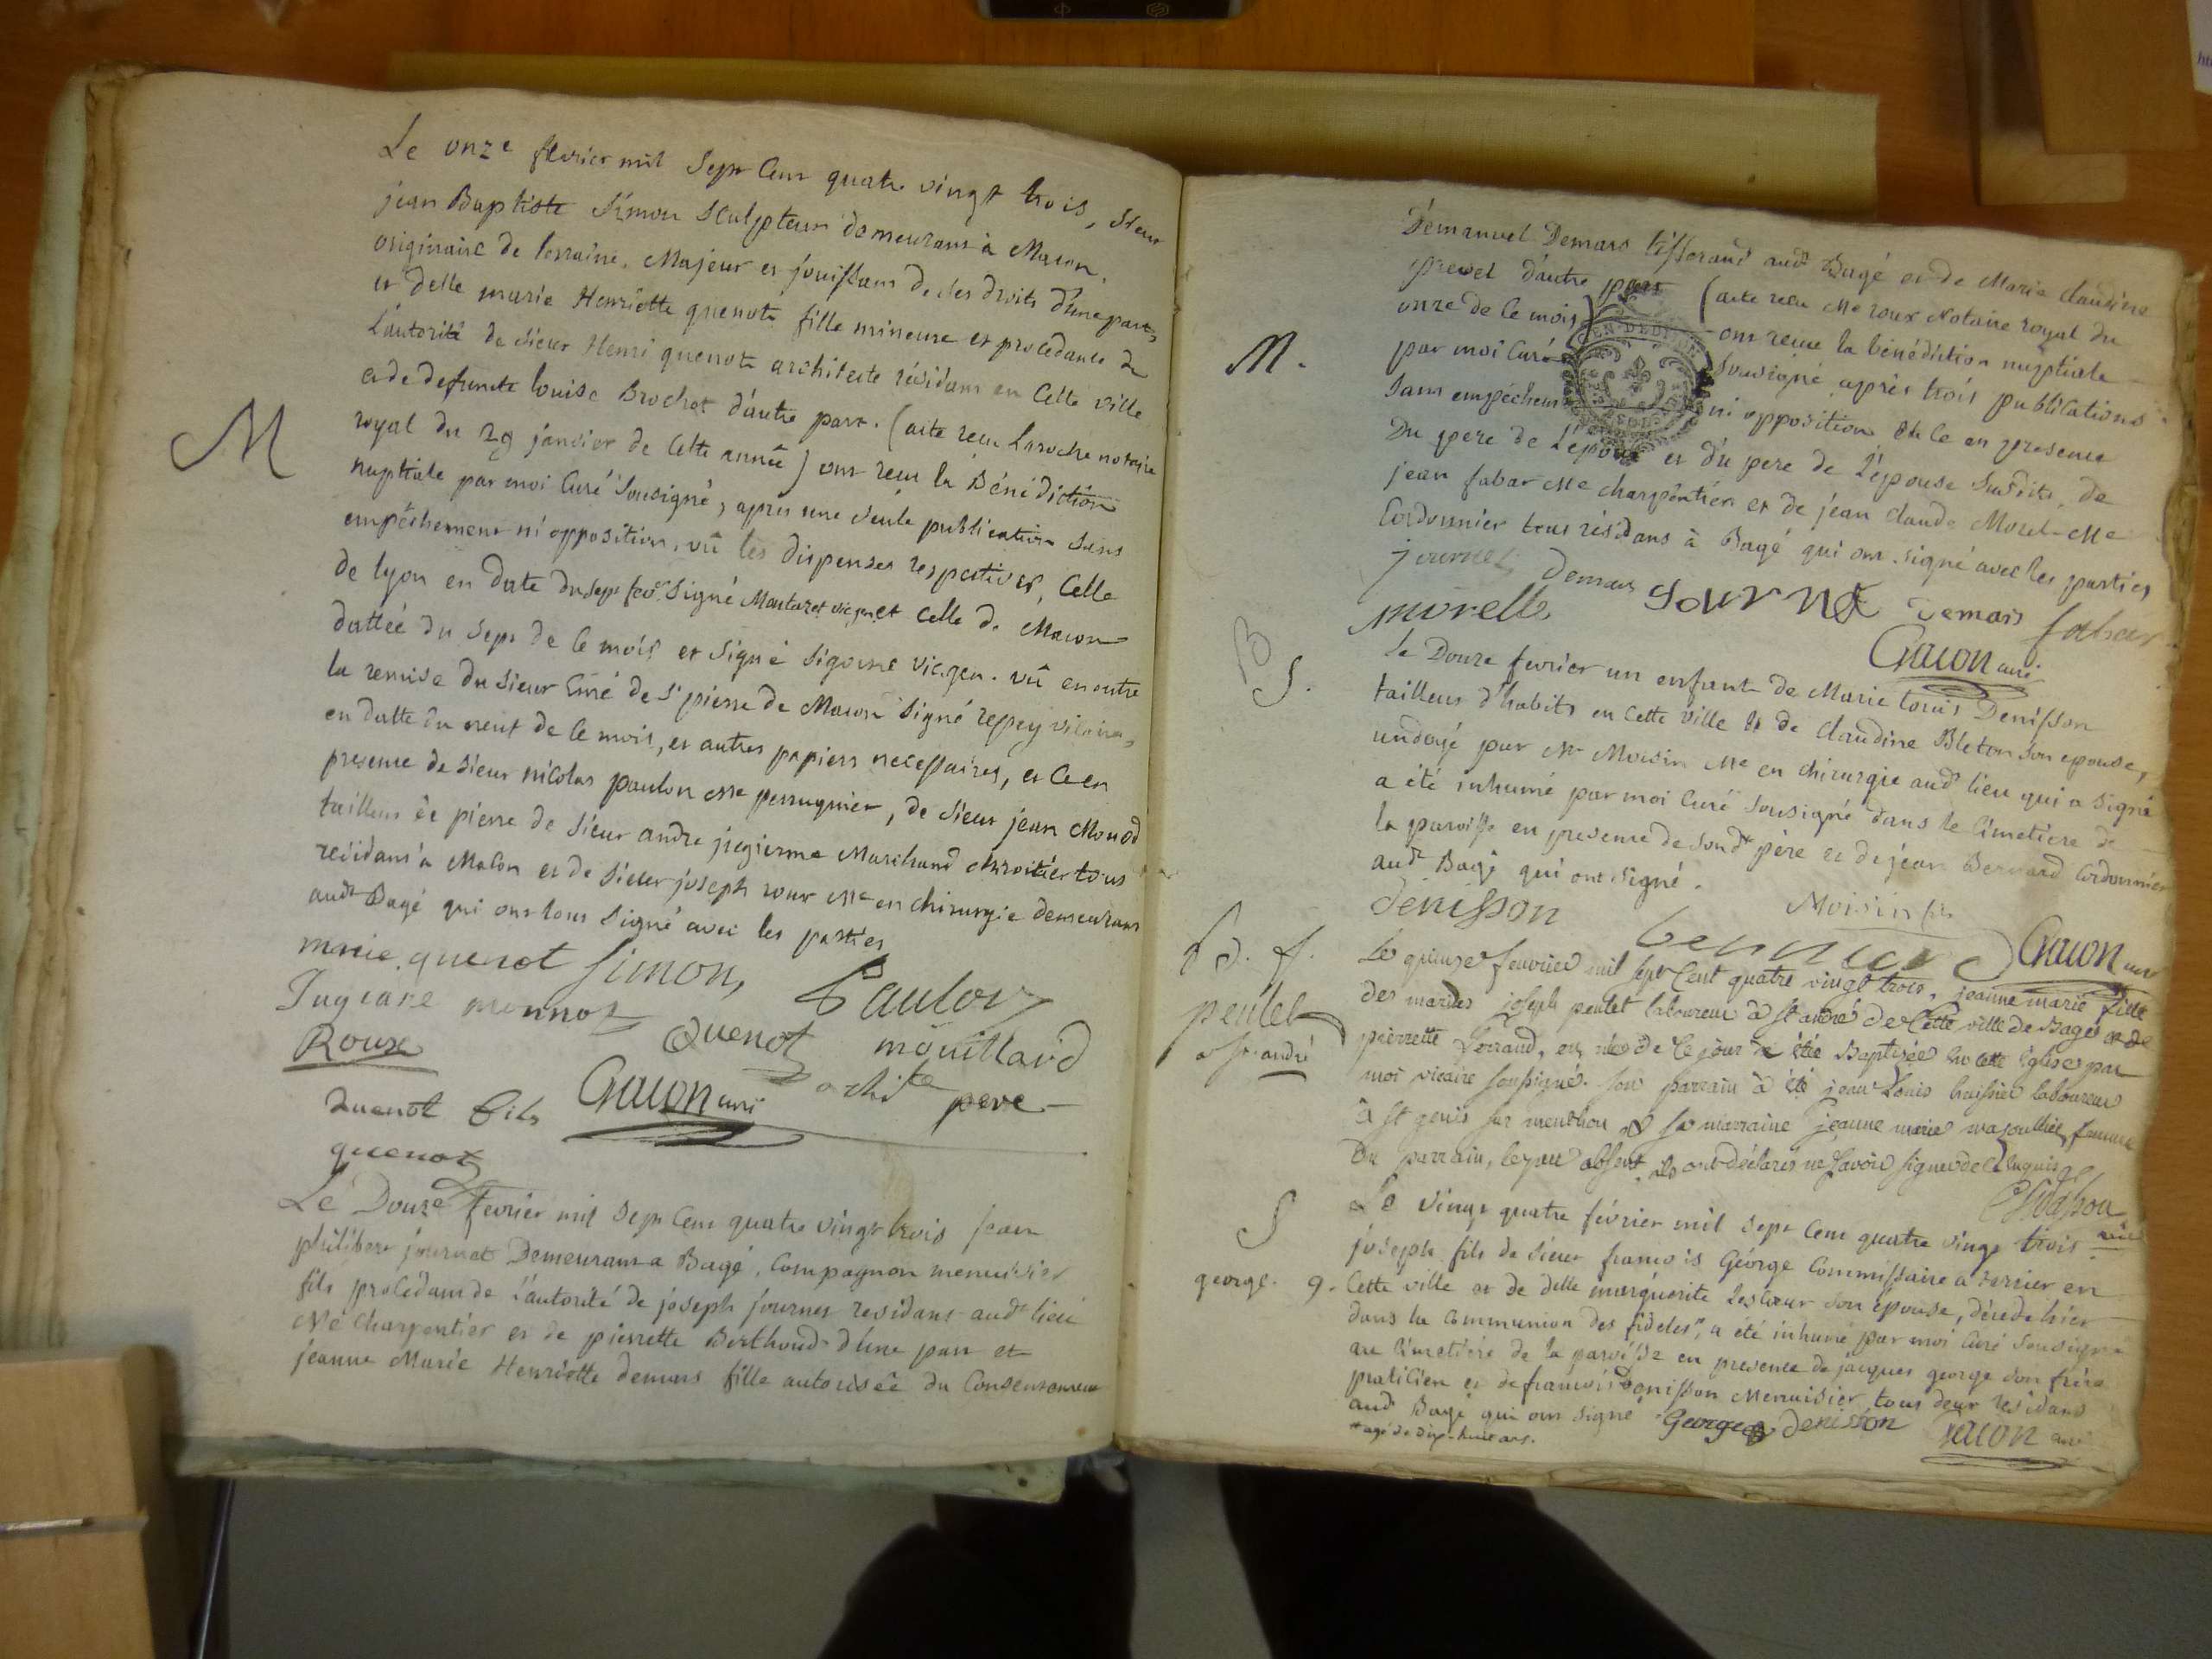 Le onze fevrier mil sept cent quatre vingt trois, sieur
jean Baptiste Simon sculpteur demeurant à Macon,
originaire de lorraine, Majeur et jouissant de ses droits d'une part,
et delle marie Henriette quenot fille mineure et procedante de
l'autorité de sieur Henri quenot architecte résidant en cette ville
et de defuncte louise Brochot d'autre part. (acte reçu Laroche notaire
M
royal du 29 janvier de cette année) ont reçu la Bénédiction
nuptiale par moi Curé sousigné, apres une seule publication sans
empêchement ni opposition, vû les dispenses respectives, Celle
de lyon en date du sept fevr. signé et celle de Macon
dattée du sept de ce mois et signé Sigorne vic. gen. vû en outre
la remise du sieur Curé de St pierre de Macon signé vicaire,
en datte du neuf de ce mois, et autres papiers necessaires, et ce en
presence de sieur nicolas paulon Me perruquier, de sieur jean Monod
tailleur de pierre de sieur andre Marchand tous
résidans à Macon et de sieur joseph roux Me en chirurgie demeurant
audt Bagé qui ont tous signé avec les parties
marie quenot Simon, Paulon
monnot
Roux quenot mouillard
archite pere
quenot fils Gacon curé
quenot
Le Douze fevrier mil sept cent quatre vingt trois jean
philibert journet Demeurant a Bagé, Compagnon menuisier
fils procédant de l'autorité de joseph journet residant audt lieu
Me Charpentier et de pierrette Berthoud d'une part et
jeanne Marie Henriette demars fille autorisée du Consentement
D'emanuel Demars tisserand audt Bagé et de Marie claudine
prevel d'autre part (acte reçu Me roux Notaire royal du
onze de ce mois) ont reçue la bénédiction nuptiale
M.
par moi Curé sousigné après trois publications
sans empêchement ni opposition et ce en presence
Du pere de L'époux et du pere de L'épouse susdits, de
jean fabar Me charpentier et de jean claude Morel Me
Cordonnier tous résidans à Bagé qui ont signé avec les parties
journet demars journet Demars fabar
morelle
Gacon curé
B
S.
Le Douze fevrier un enfant de Marie louis Denisson
tailleur d'habits en cette ville et de claudine Bleton son epouse,
undoyé par Mr Moisin Me en chirurgie audt lieu qui a signé
a été inhumé par moi Curé sousigné dans le Cimetiere de
la paroisse en presence de sondt père et de jean Bernard Cordonnier
audt Bagé qui ont signé.
denisson Moisin fils
bernard Gacon curé
B. f.
peulet
a st andré
Le quinze fevrier mil sept cent quatre vingt trois, jeanne marie fille
des mariés joseph peulet laboureur à St andré de cette ville de Bagé et de
pierrette Ferraud, est née de ce jour a été Baptisée en cette église par
moi vicaire soussigné. son parrain a été jean Louis laboureur
à St genis sur menthon et sa marraine jeanne marie femme
Du parrain, le pere absent, ils ont déclarés ne savoir signer de ce enquis
S
george. 9.
Le vingt quatre février mil sept cent quatre vingt trois
joseph fils de sieur francois George Commissaire a terrier en
Cette ville et de delle marguerite son épouse, décédé hier
dans la Communion des fideles*, a été inhumé par moi Curé sousigné
au Cimetiere de la paroisse en presence de jacques george son frère
praticien et de francois Denisson Menuisier tous deux residans
audt Bagé qui ont signé George denisson Gacon curé
* agé de dix-huit ans.